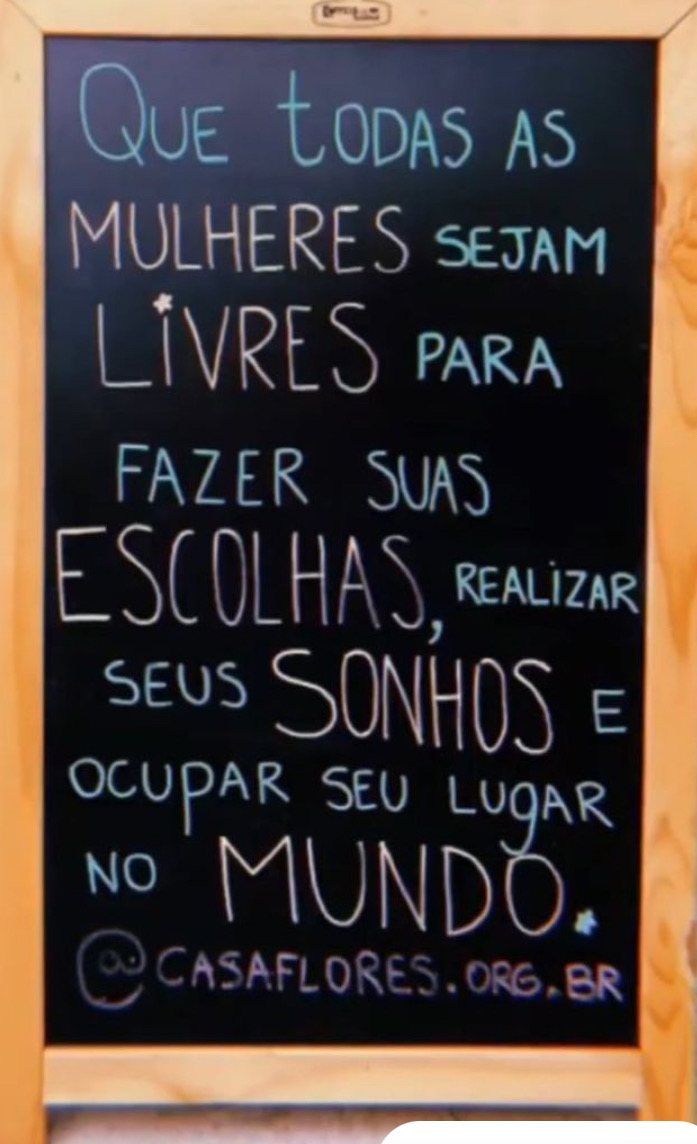 QUE tODAS AS
MULHERES SEJAM
LiVRES PARA
FAZER SUAS
ESCOLHAS, REALiZAR
SEUS SONHOS E
OCUPAR SEU LUgAR
NO MUNDO.
@CASAFLORES.ORG.BR